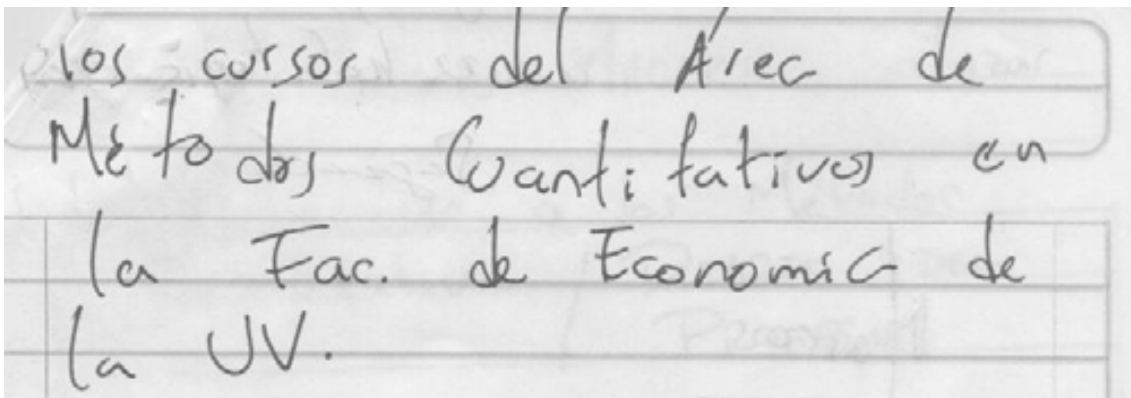 los cursos del Área de
Métodos Cuantitativos en
la Fac. de Economia de
la UV.